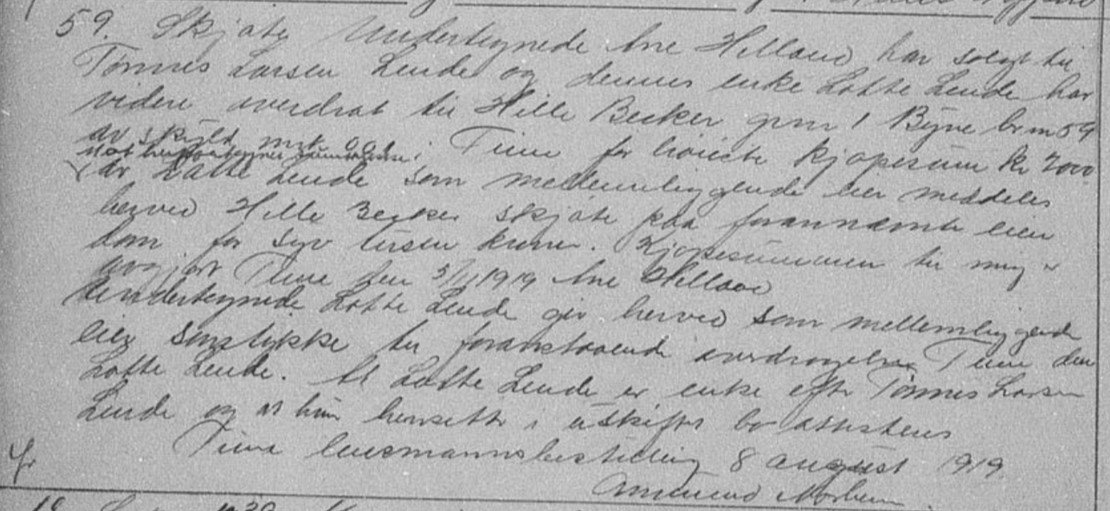 59. Skjøte Undertegnede Ane Helland har solgt til
Tønnes Larsen Lende og dennes enke Lotte Lende har
videre overdrat til Hille Becker grn 1 Byne brn 59
av skyld mrk 0.01
i Time for høieste kjøpesum kr 7000
av Lotte Lende som mellemliggende eier meddeles
herved Hille Becker skjøte paa forannævnte eien
dom for syv tusen kroner. Kjøpesummen til mig er
avgjort Time den 5/7 1919 Ane Helland
Undertegnede Lotte Lende gir herved som mellemliggende
eier samtykke til foranstaaende overdragelse Time den
Lotte Lende. At Lotte Lende er enke efter Tønnes Larsen
Lende og at hun hensitter i uskiftet bo attesteres
Time lensmannsbestilling 8 august 1919.